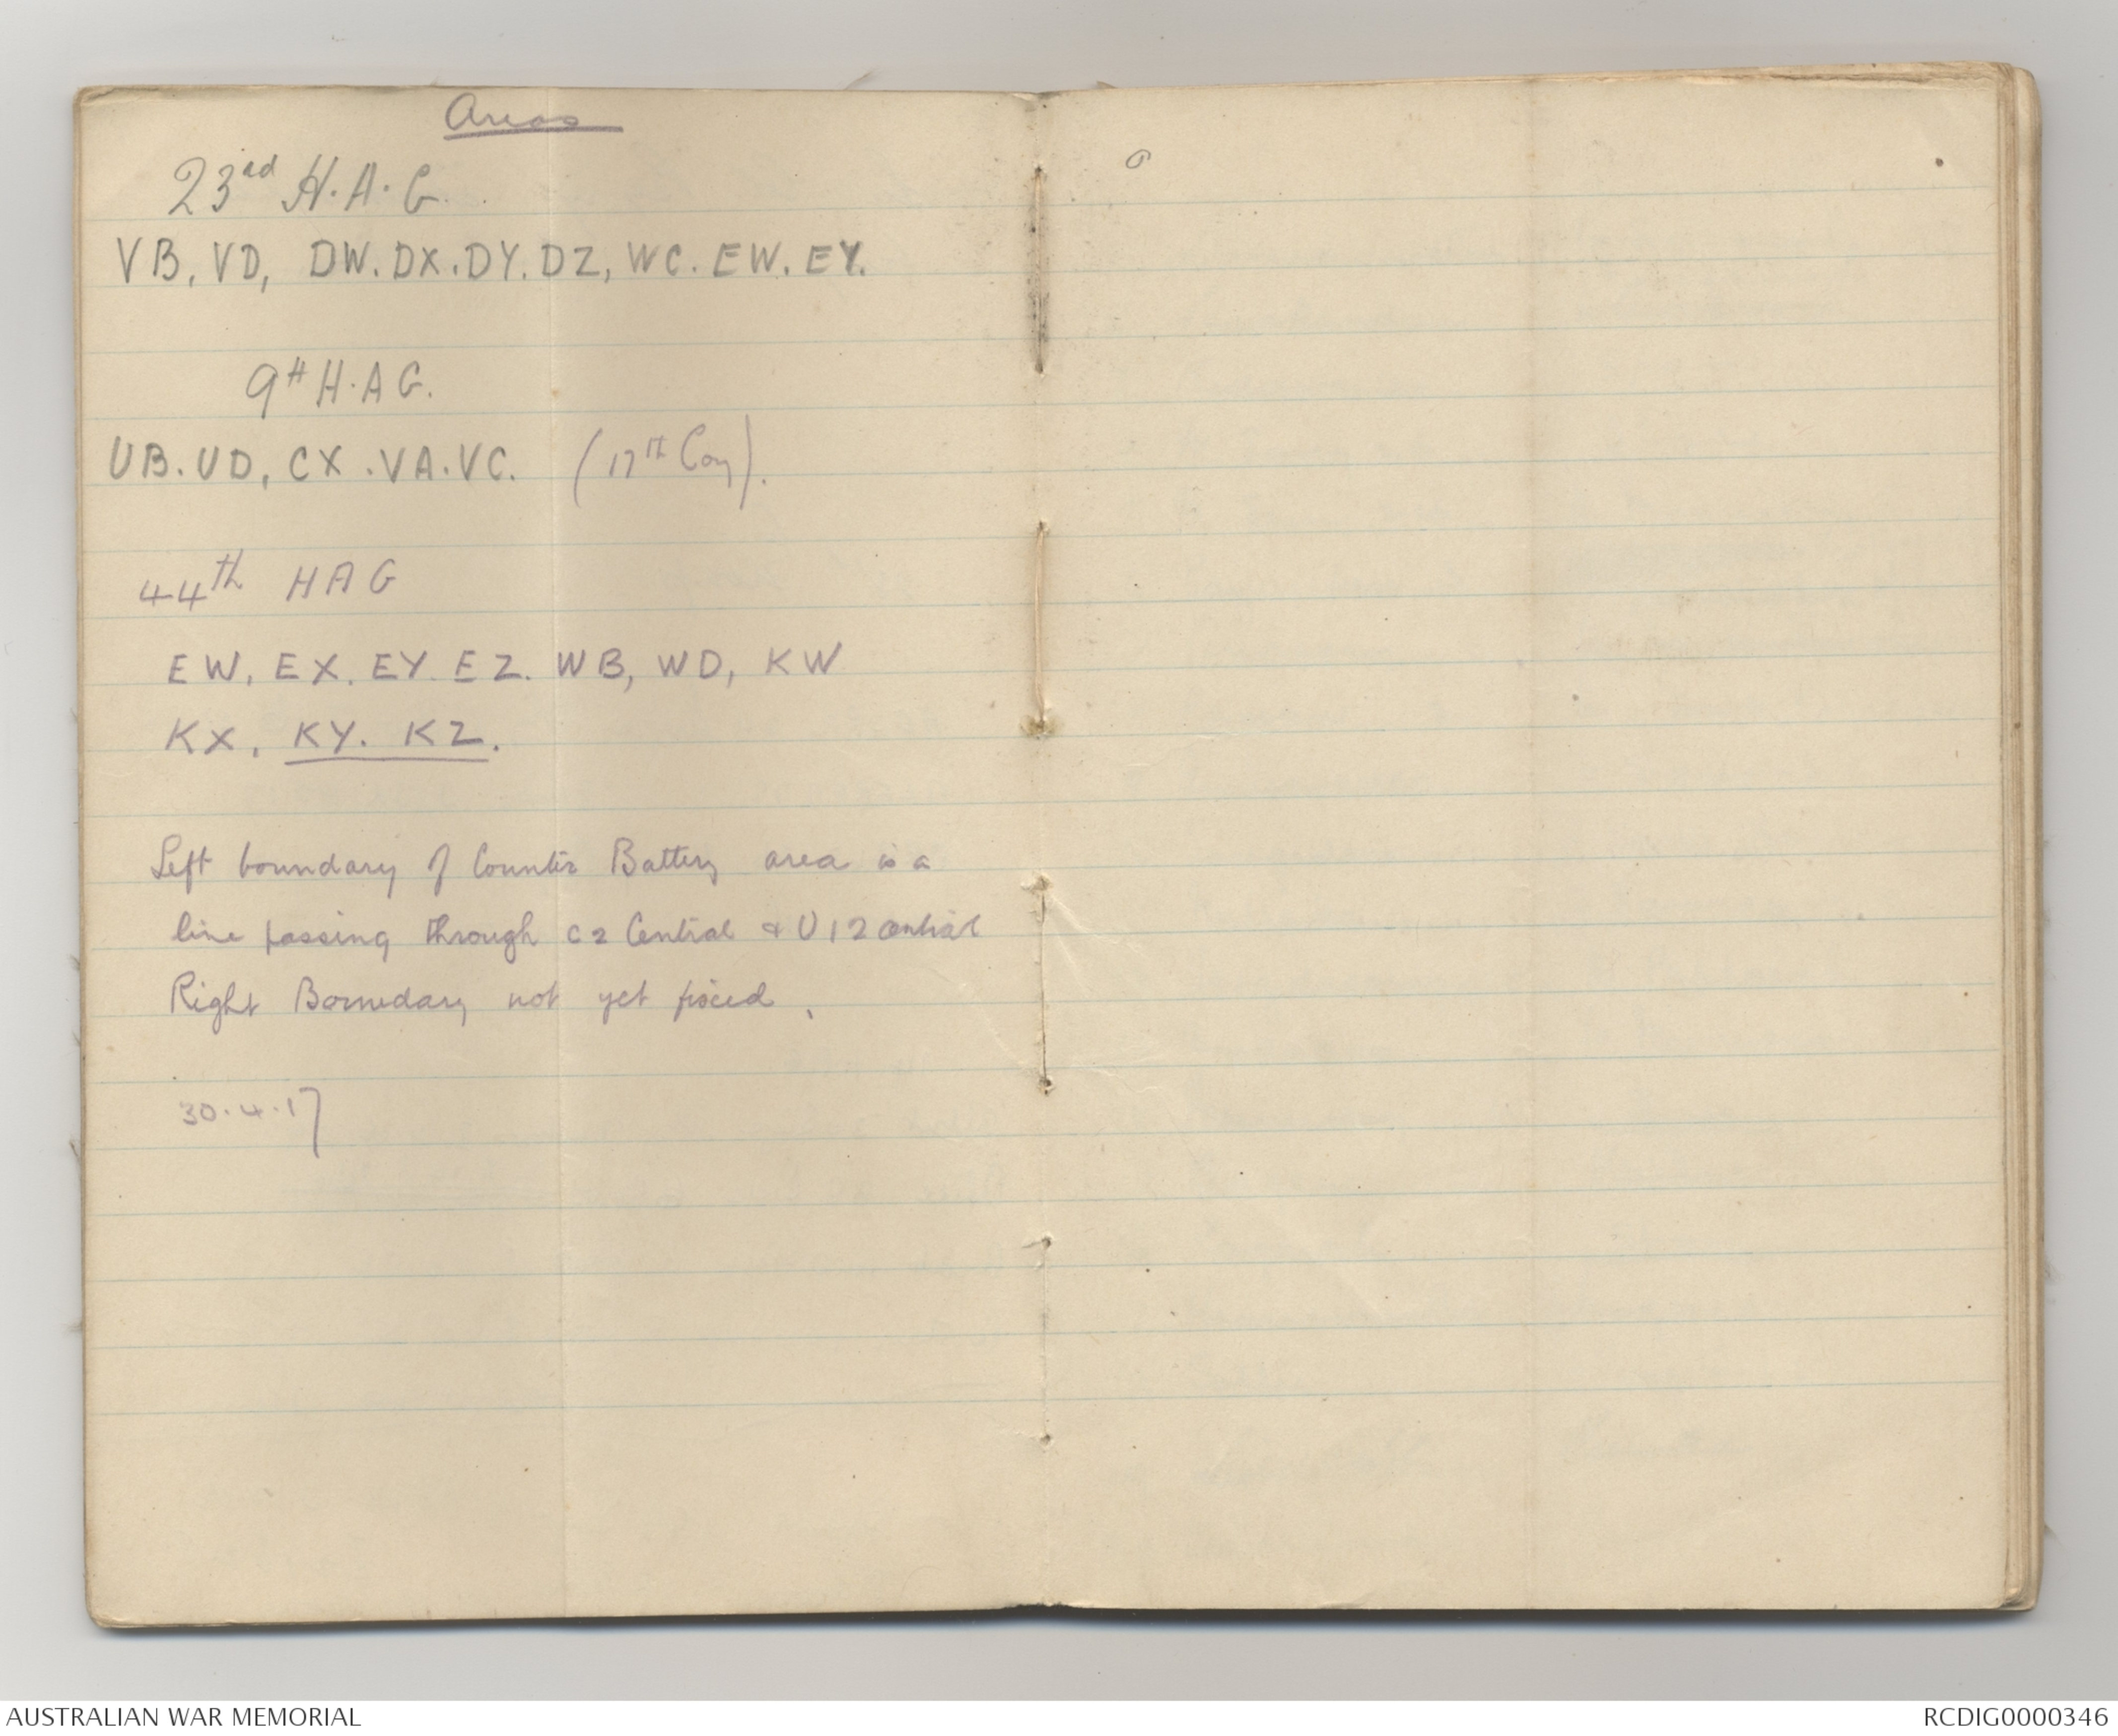 Areas
23rd H.A.G.
VB, VD, DW. DX. DY. DZ, WC. EW. EY.
9th H.A G.
UB. UD, CX. VA. VC. (17th Coy).
44th HAG
EW, EX, EY. EZ. WB, WD, KW
KX, KY. KZ.
Left boundary of Counter Battery area is a
line passing through C2 Central & U12 central
Right Boundary not yet fixed.
30.4.17
AUSTRALIAN WAR MEMORIAL
RCDIG0000346